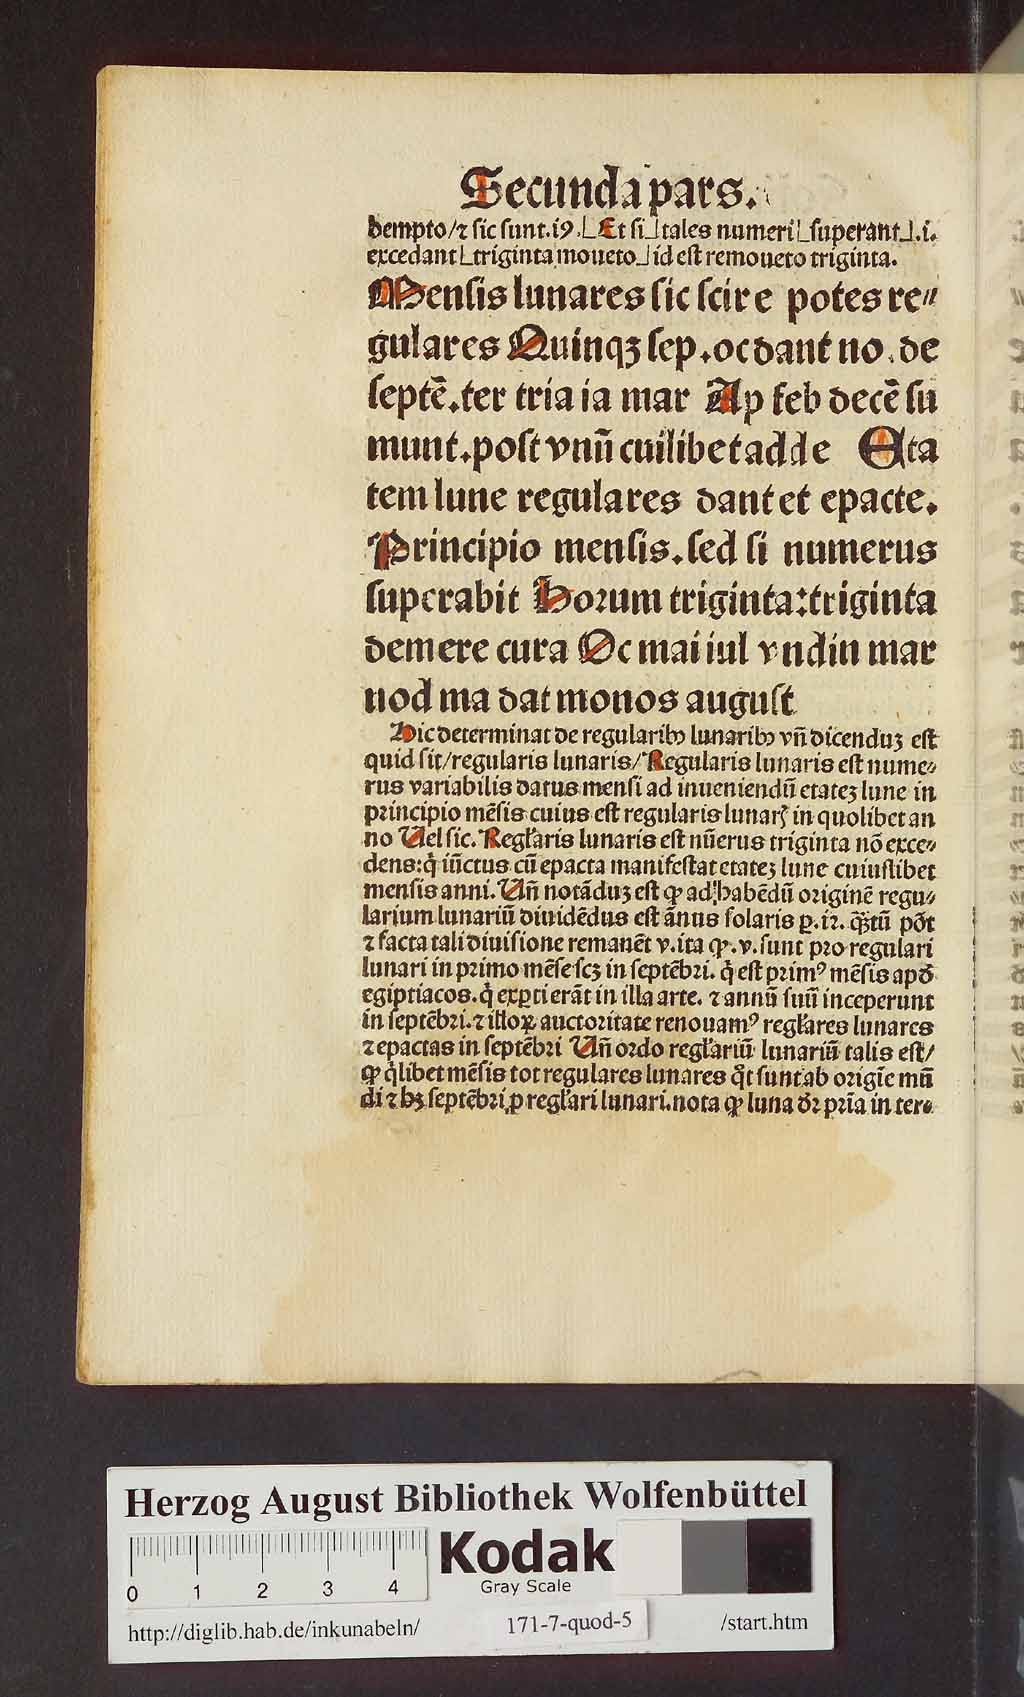 Secunda pars.
dempto/ ⁊ sic sunt.i9.⌊Et si⌋ tales numeri ⌊superant⌋.i.
excedant ⌊triginta moueto⌋ id est remoueto triginta.
Mensis lunares sic scire potes re⸗
gulares Quinqꝫ sep.oc dant no.de
septē.ter tria ia mar Ap feb decē su
munt.post vnū cuilibet adde Eta
tem lune regulares dant et epacte.
Principio mensis.sed si numerus
superabit Horum triginta:triginta
demere cura Oc mai iul vndin mar
nod ma dat monos august
Hic determinat de regularibꝰ lunaribꝰ vn̄ dicenduꝫ est
quid sit/regularis lunaris/Regularis lunaris est nume⸗
rus variabilis datus mensi ad inueniendū etateꝫ lune in
principio mēsis cuius est regularis lunarꝭ in quolibet an
no Uel sic. Regl̄aris lunaris est nūerus triginta nō exce⸗
dens:q̇ iūctus cū epacta manifestat etateꝫ lune cuiuslibet
mensis anni. Un̄ notāduꝫ est ꝙ ad habēdū originē regu⸗
larium lunariū diuidēdus est ānus solaris ꝑ.12. qꝫtū pōt
⁊ facta tali diuisione remanēt v.ita ꝙ.v.sunt pro regulari
lunari in primo mēse scꝫ in septēbri. q̇ est primꝰ mēsis apd̄
egiptiacos.q̇ exꝑti erāt in illa arte. ⁊ annū suū inceperunt
in septēbri.⁊ illoꝝ auctoritate renouamꝰ regl̄ares lunares
⁊ epactas in septēbri Un̄ ordo regl̄ariū lunariū talis est/
ꝙ q̇libet mēsis tot regulares lunares q̇t sunt ab origīe mū
di ⁊ hꝫ septēbri ꝓ regl̄ari lunari.nota ꝙ luna dr̄ prīa in ter⸗
Herzog August Bibliothek Wolfenbüttel
Kodak
Gray Scale
0 1 2 3 4
http://diglib.hab.de/inkunabeln/ 171-7-quod-5 /start.htm